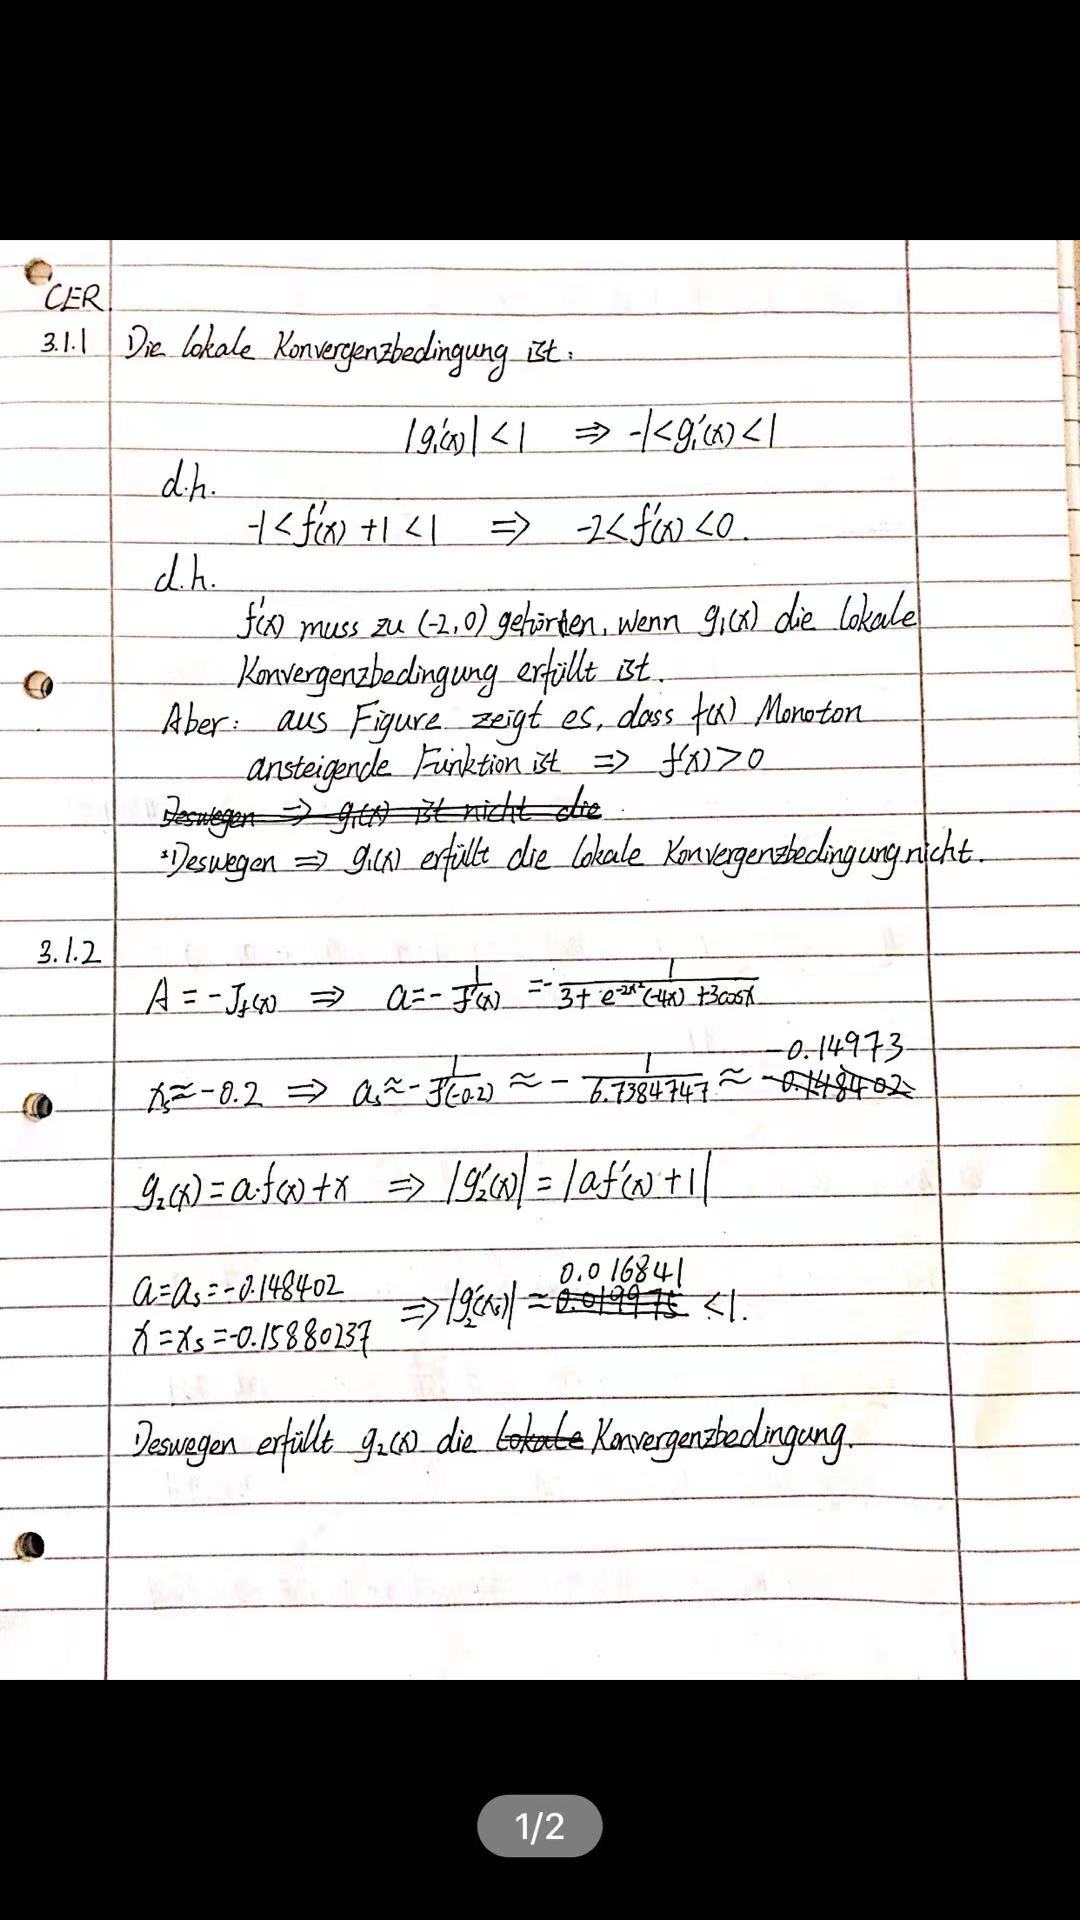 CER
3.1.1 Die lokale Konvergenzbedingung ist:
|g₁'(x)| < 1 ⇒ -1 < g₁'(x) < 1
d.h.
-1 < f'(x) + 1 < 1 ⇒ -2 < f'(x) < 0.
d.h.
f'(x) muss zu (-2,0) gehörten, wenn g₁(x) die lokale
Konvergenzbedingung erfüllt ist.
Aber: aus Figure zeigt es, dass f(x) Monoton
ansteigende Funktion ist ⇒ f'(x) > 0
Deswegen ⇒ g₁(x) ist nicht die
*Deswegen ⇒ g₁(x) erfüllt die lokale Konvergenzbedingung nicht.
3.1.2
A = -J_f(x) ⇒ a = - 1/f'(x) = - 1/(3 + e^(-2x²)(-4x) + 3cosx)
-0.14973
x_s ≈ -0.2 ⇒ a_s ≈ - 1/f'(-0.2) ≈ - 1/6.7384747 ≈ -0.148402
g₂(x) = a·f(x) + x ⇒ |g₂'(x)| = |af'(x) + 1|
0.016841
a = a_s = -0.148402
⇒ |g₂'(x_s)| ≈ 0.019975 < 1.
x = x_s = -0.15880237
Deswegen erfüllt g₂(x) die lokale Konvergenzbedingung.
1/2